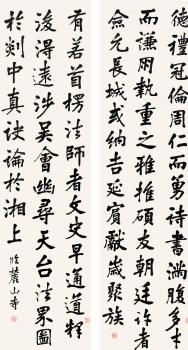 德禮冠倫周仁而勇詩書滿腹多才
而謙執重之雅推碩友朝廷許者
僉允長城或納吉延賓獻歲聚族
有若首楞法師者文史早通道釋
後得遠涉吳會幽尋天台法界圖
於剡中真訣論於湘上 臨麓山寺